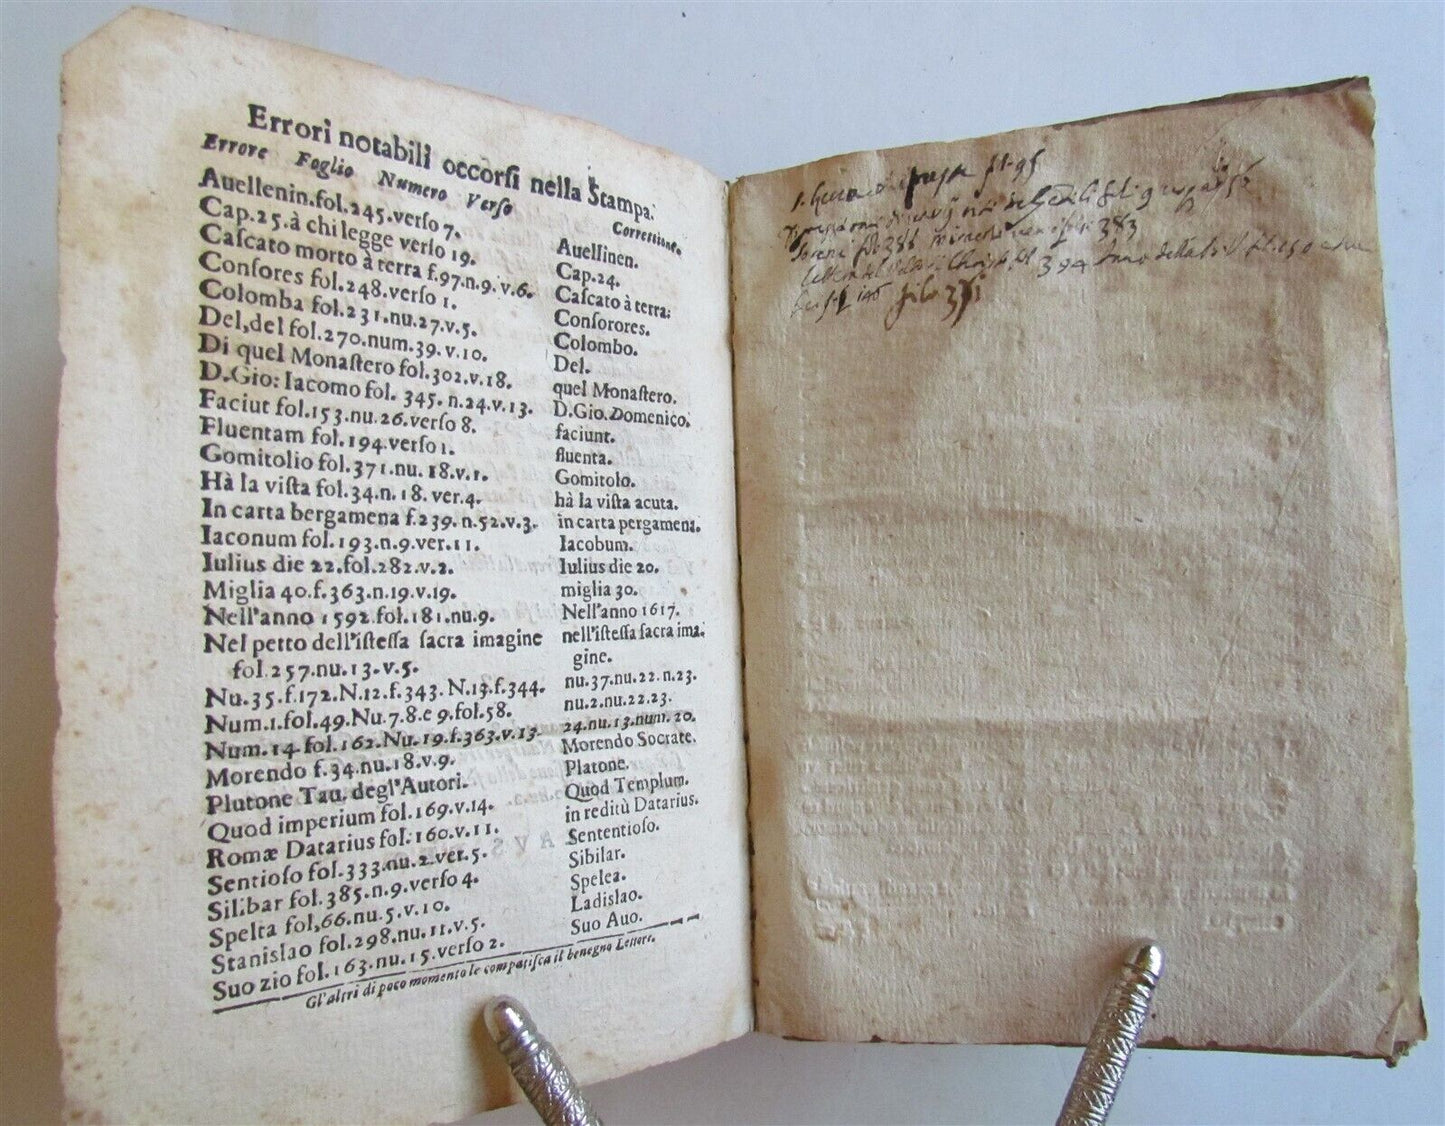 Errori notabili occorsi nella Stampa.
Errore Foglio Numero Verso Correttione.
Auellenin.fol.245.verso 7. Auellinen.
Cap.25.à chi legge verso 19. Cap.24.
Cascato morto à terra f.97.n.9.v.6. Cascato à terra:
Consores fol.248.verso 1. Consorores.
Colomba fol.231.nu.27.v.5. Colombo.
Del,del fol.270.num.39.v.10. Del.
Di quel Monastero fol.302.v.18. quel Monastero.
D.Gio: Iacomo fol. 345. n.24.v.13. D.Gio.Domenico.
Faciut fol.153.nu.26.verso 8. faciunt.
Fluentam fol.194.verso 1. fluenta.
Gomitolio fol.371.nu.18.v.1. Gomitolo.
Hà la vista fol.34.n.18. ver.4. hà la vista acuta.
In carta bergamena f.239.n.52.v.3. in carta pergamena.
Iaconum fol.193.n.9.ver.11. Iacobum.
Iulius die 22.fol.282.v.2. Iulius die 20.
Miglia 40.f.363.n.19.v.19. miglia 30.
Nell'anno 1592.fol.181.nu.9. Nell'anno 1617.
Nel petto dell'istessa sacra imagine nell'istessa sacra ima-
fol.257.nu.13.v.5. gine.
Nu.35.f.172.N.12.f.343.N.13.f.344. nu.37.nu.22.n.23.
Num.1.fol.49.Nu.7.8.e 9.fol.58. nu.2.nu.22.23.
Num.14.fol.162.Nu.19.f.363.v.13. 24.nu.13.num.20.
Morendo f.34.nu.18.v.9. Morendo Socrate.
Plutone Tau. degl'Autori. Platone.
Quod imperium fol.169.v.14. Quod Templum.
Romæ Datarius fol.160.v.11. in reditù Datarius.
Sentioso fol.333.nu.2.ver.5. Sententioso.
Silibar fol.385.n.9.verso 4. Sibilar.
Spelta fol,66.nu.5.v.10. Spelea.
Stanislao fol.298.nu.11.v.5. Ladislao.
Suo zio fol.163.nu.15.verso 2. Suo Auo.
Gl'altri di poco momento le compatisca il benegno Lettore.
fol. 95
383
fol 394
fol. 371